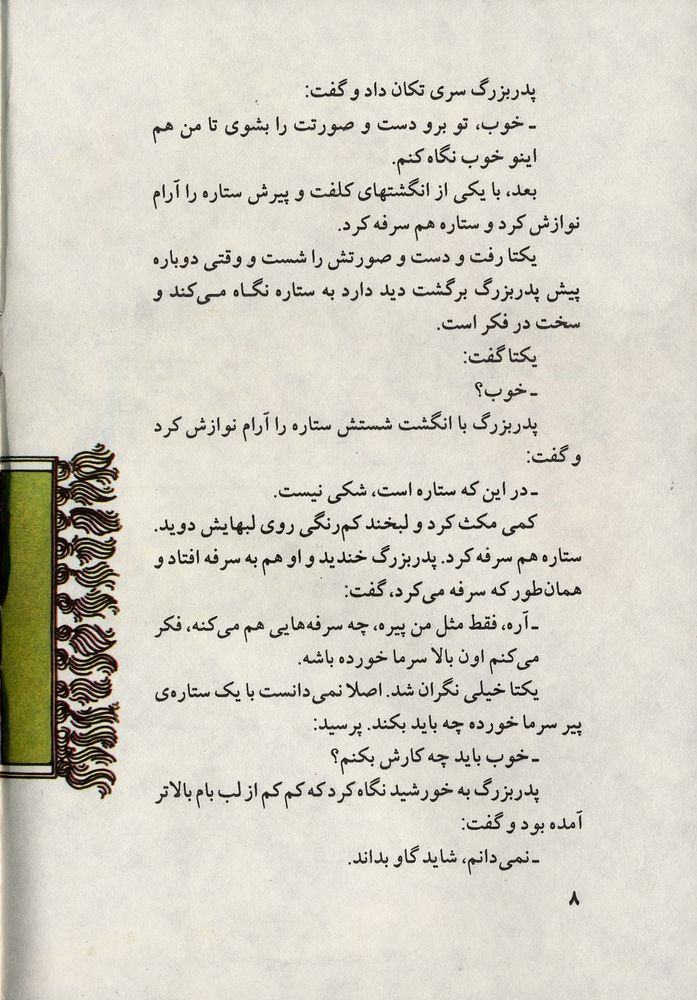 پدربزرگ سری تکان داد و گفت:
ـ خوب، تو برو دست و صورتت را بشوی تا من هم
اینو خوب نگاه کنم.
بعد، با یکی از انگشتهای کلفت و پیرش ستاره را آرام
نوازش کرد و ستاره هم سرفه کرد.
یکتا رفت و دست و صورتش را شست و وقتی دوباره
پیش پدربزرگ برگشت دید دارد به ستاره نگاه می‌کند و
سخت در فکر است.
یکتا گفت:
ـ خوب؟
پدربزرگ با انگشت شستش ستاره را آرام نوازش کرد
و گفت:
ـ در این که ستاره است، شکی نیست.
کمی مکث کرد و لبخند کم‌رنگی روی لبهایش دوید.
ستاره هم سرفه کرد. پدربزرگ خندید و او هم به سرفه افتاد و
همان‌طور که سرفه می‌کرد، گفت:
ـ آره، فقط مثل من پیره، چه سرفه‌هایی هم می‌کنه، فکر
می‌کنم اون بالا سرما خورده باشه.
یکتا خیلی نگران شد. اصلا نمی‌دانست با یک ستاره‌ی
پیر سرما خورده چه باید بکند. پرسید:
ـ خوب باید چه کارش بکنم؟
پدربزرگ به خورشید نگاه کرد که کم کم از لب بام بالاتر
آمده بود و گفت:
ـ نمی‌دانم، شاید گاو بداند.
۸